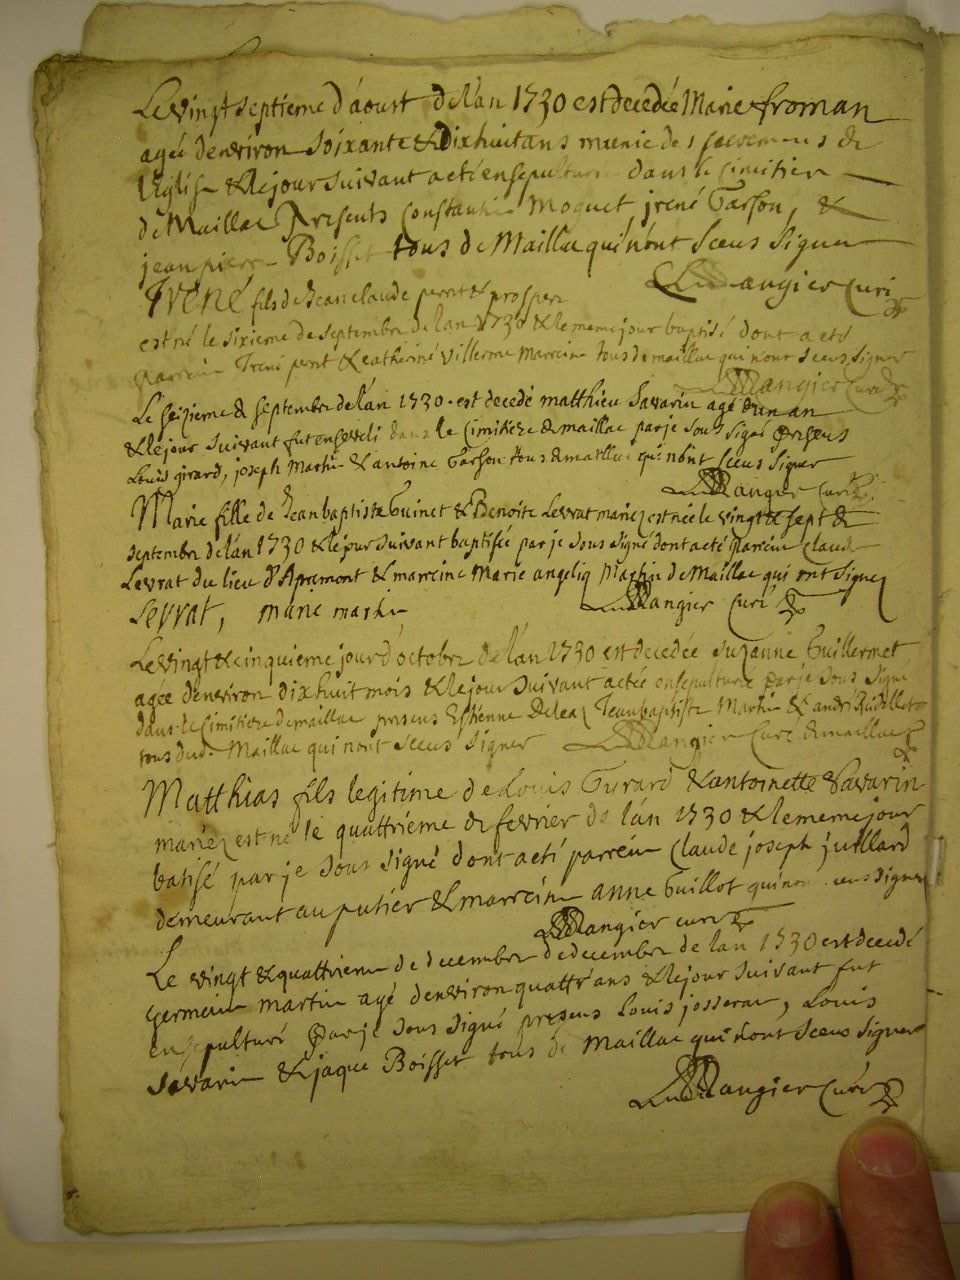 Le vingt septieme d'aoust de l'an 1730 est decedée Marie froman
agée denviron soixante & dixhuit ans munie des sacremens de
l'Eglise & le jour suivant a eté ensepulturée dans le cimitier
de Maillac Presents Constantin Moquet, jrené Garson, &
jean pierre Boisset tous de Maillac qui n'ont sceus signer
Mangier Curé
Irené fils de Jean claude perret & prospere
est né le sixieme de septembre de lan 1730 & le meme jour baptisé dont a eté
parrein Irené perret & catherine villerme marreine tous de maillac qui n'ont sceus signer
Mangier Curé
Le seizieme de septembre de lan 1730 est decedé matthieu Savarin agé d'un an
& le jour suivant fut enseveli dans le cimitiere de maillac par je sous signé presens
Louis girard, joseph Martin & antoine Garson tous de maillac qui n'ont sceus signer
Mangier Curé
Marie fille de Jean baptiste Guinet & Benoite Levrat mariez est née le vingt & sept de
septembre de lan 1730 & le jour suivant baptisée par je sous signé dont a eté parrein claude
Levrat du lieu d'Apremont & marreine Marie angeliq Martin de Maillac qui ont signez
Levrat, marie martin
Mangier Curé
Le vingt & cinquieme jour d'octobre de l'an 1730 est decedée suzanne Guillermet
agée denviron dixhuit mois & le jour suivant a etée ensepulturée par je sous signé
dans le cimitiere de maillac presens Estienne Jean baptiste Martin & andré
tous dud. Maillac qui n'ont sceus signer Mangier Curé de maillac
Matthias fils legitime de Louis Girard & antoinette Savarin
mariez est né le quattrieme de fevrier de lan 1730 & le meme jour
batisé par je sous signé dont a eté parrein claude joseph juillard
demeurant au putier & marreine anne Guillot qui n'ont sceus signer
Mangier curé
Le vingt & quattrieme de decembre de decembre de lan 1730 est decedé
germain martin agé denviron quattre ans & le jour suivant fut
ensepulturé par je sous signé presens Louis josserand, Louis
Savarin & jaque Boisset tous de Maillac qui n'ont sceus signer
Mangier Curé